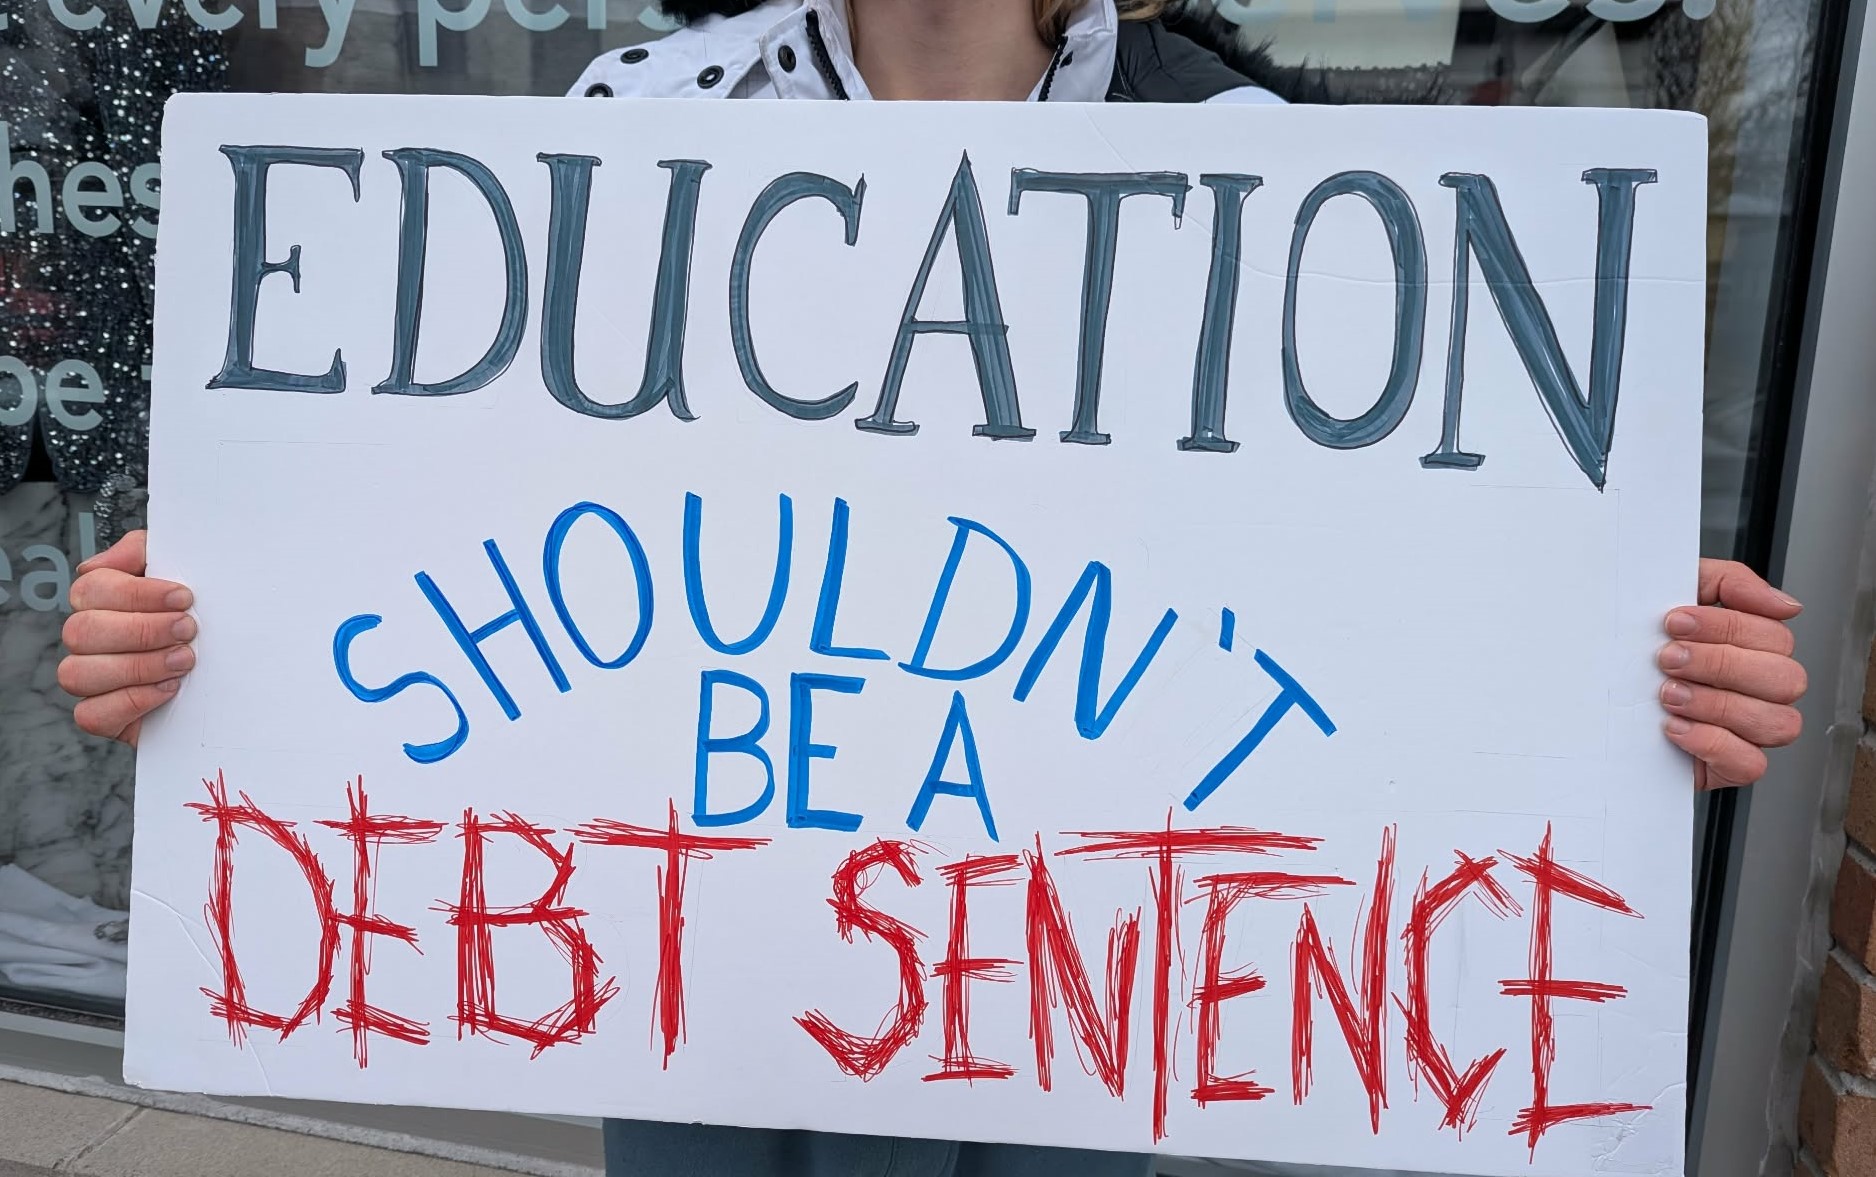 every
hes
be
EDUCATION
SHOULDN'T
BE A
DEBT SENTENCE